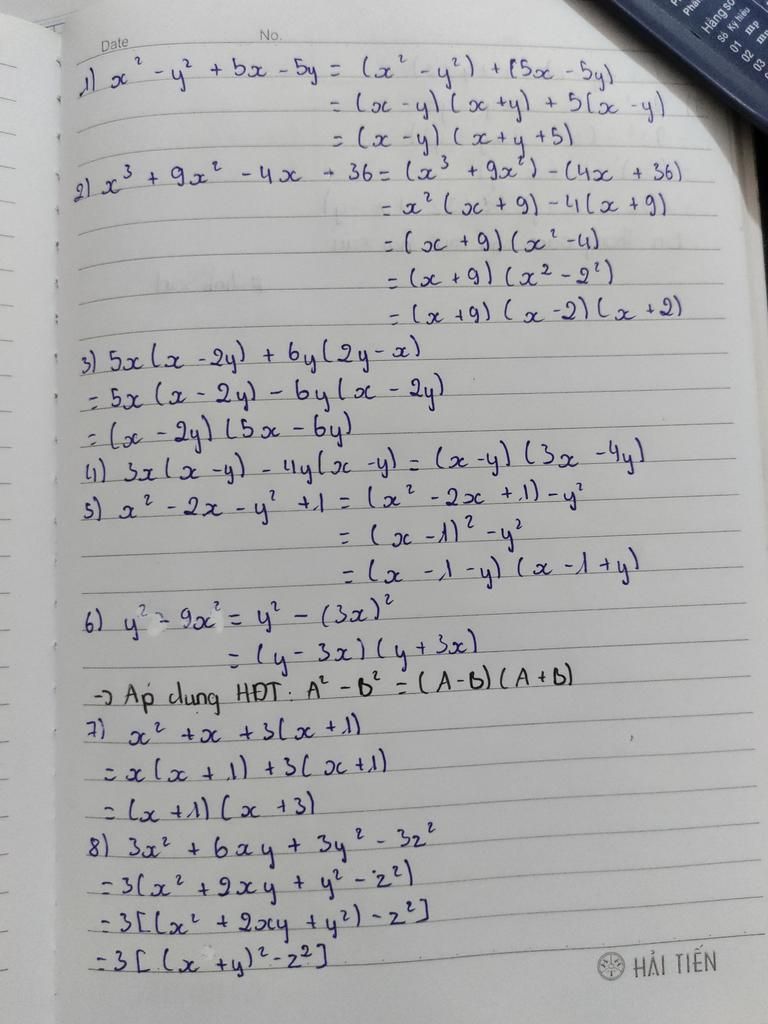 Date No.
1) x² - y² + 5x - 5y = (x² - y²) + (5x - 5y)
= (x - y) (x + y) + 5(x - y)
= (x - y) (x + y + 5)
2) x³ + 9x² - 4x - 36 = (x³ + 9x²) - (4x + 36)
= x² (x + 9) - 4(x + 9)
= (x + 9) (x² - 4)
= (x + 9) (x² - 2²)
= (x + 9) (x - 2) (x + 2)
3) 5x(x - 2y) + 6y(2y - x)
= 5x(x - 2y) - 6y(x - 2y)
= (x - 2y) (5x - 6y)
4) 3x(x - y) - 4y(x - y) = (x - y) (3x - 4y)
5) x² - 2x - y² + 1 = (x² - 2x + 1) - y²
= (x - 1)² - y²
= (x - 1 - y) (x - 1 + y)
6) y² - 9x² = y² - (3x)²
= (y - 3x) (y + 3x)
→ Áp dụng HĐT: A² - B² = (A - B) (A + B)
7) x² + x + 3(x + 1)
= x(x + 1) + 3(x + 1)
= (x + 1) (x + 3)
8) 3x² + 6xy + 3y² - 3z²
= 3(x² + 2xy + y² - z²)
= 3[(x² + 2xy + y²) - z²]
= 3[(x + y)² - z²]
HẢI TIẾN
Hàng số
Số Ký hiệu
01 mp
02
03